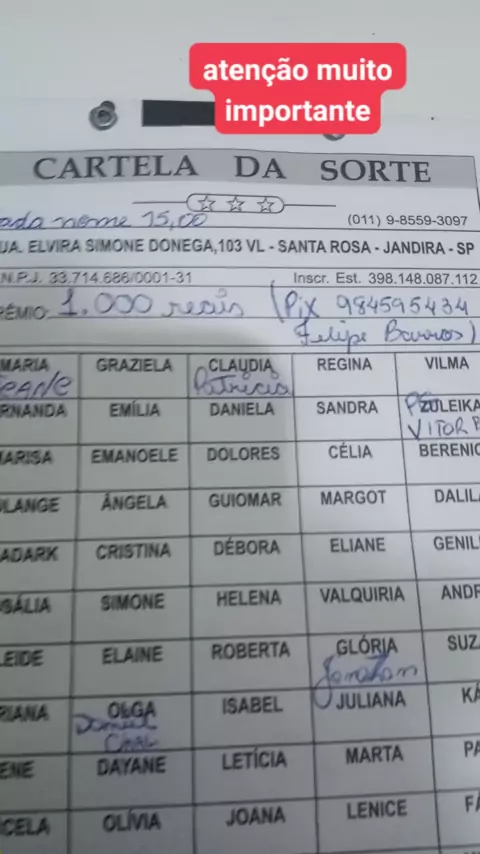 atenção muito
importante
CARTELA DA SORTE
ada nome 15,00
(011) 9-8559-3097
UA. ELVIRA SIMONE DONEGA,103 VL - SANTA ROSA - JANDIRA - SP
.N.P.J. 33.714.686/0001-31 Inscr. Est. 398.148.087.112
RÊMIO: 1.000 reais (Pix 984595434
Felipe Barros)
MARIA GRAZIELA CLAUDIA REGINA VILMA
EANE Patricia
RNANDA EMÍLIA DANIELA SANDRA ZULEIKA
VITOR
ARISA EMANOELE DOLORES CÉLIA BERENIC
LANGE ÂNGELA GUIOMAR MARGOT DALIL
ADARK CRISTINA DÉBORA ELIANE GENIL
SÁLIA SIMONE HELENA VALQUIRIA ANDR
LEIDE ELAINE ROBERTA GLÓRIA SUZ
Jonatan
RIANA OLGA ISABEL JULIANA KÁ
ENE DAYANE LETÍCIA MARTA PA
CELA OLÍVIA JOANA LENICE FÁ